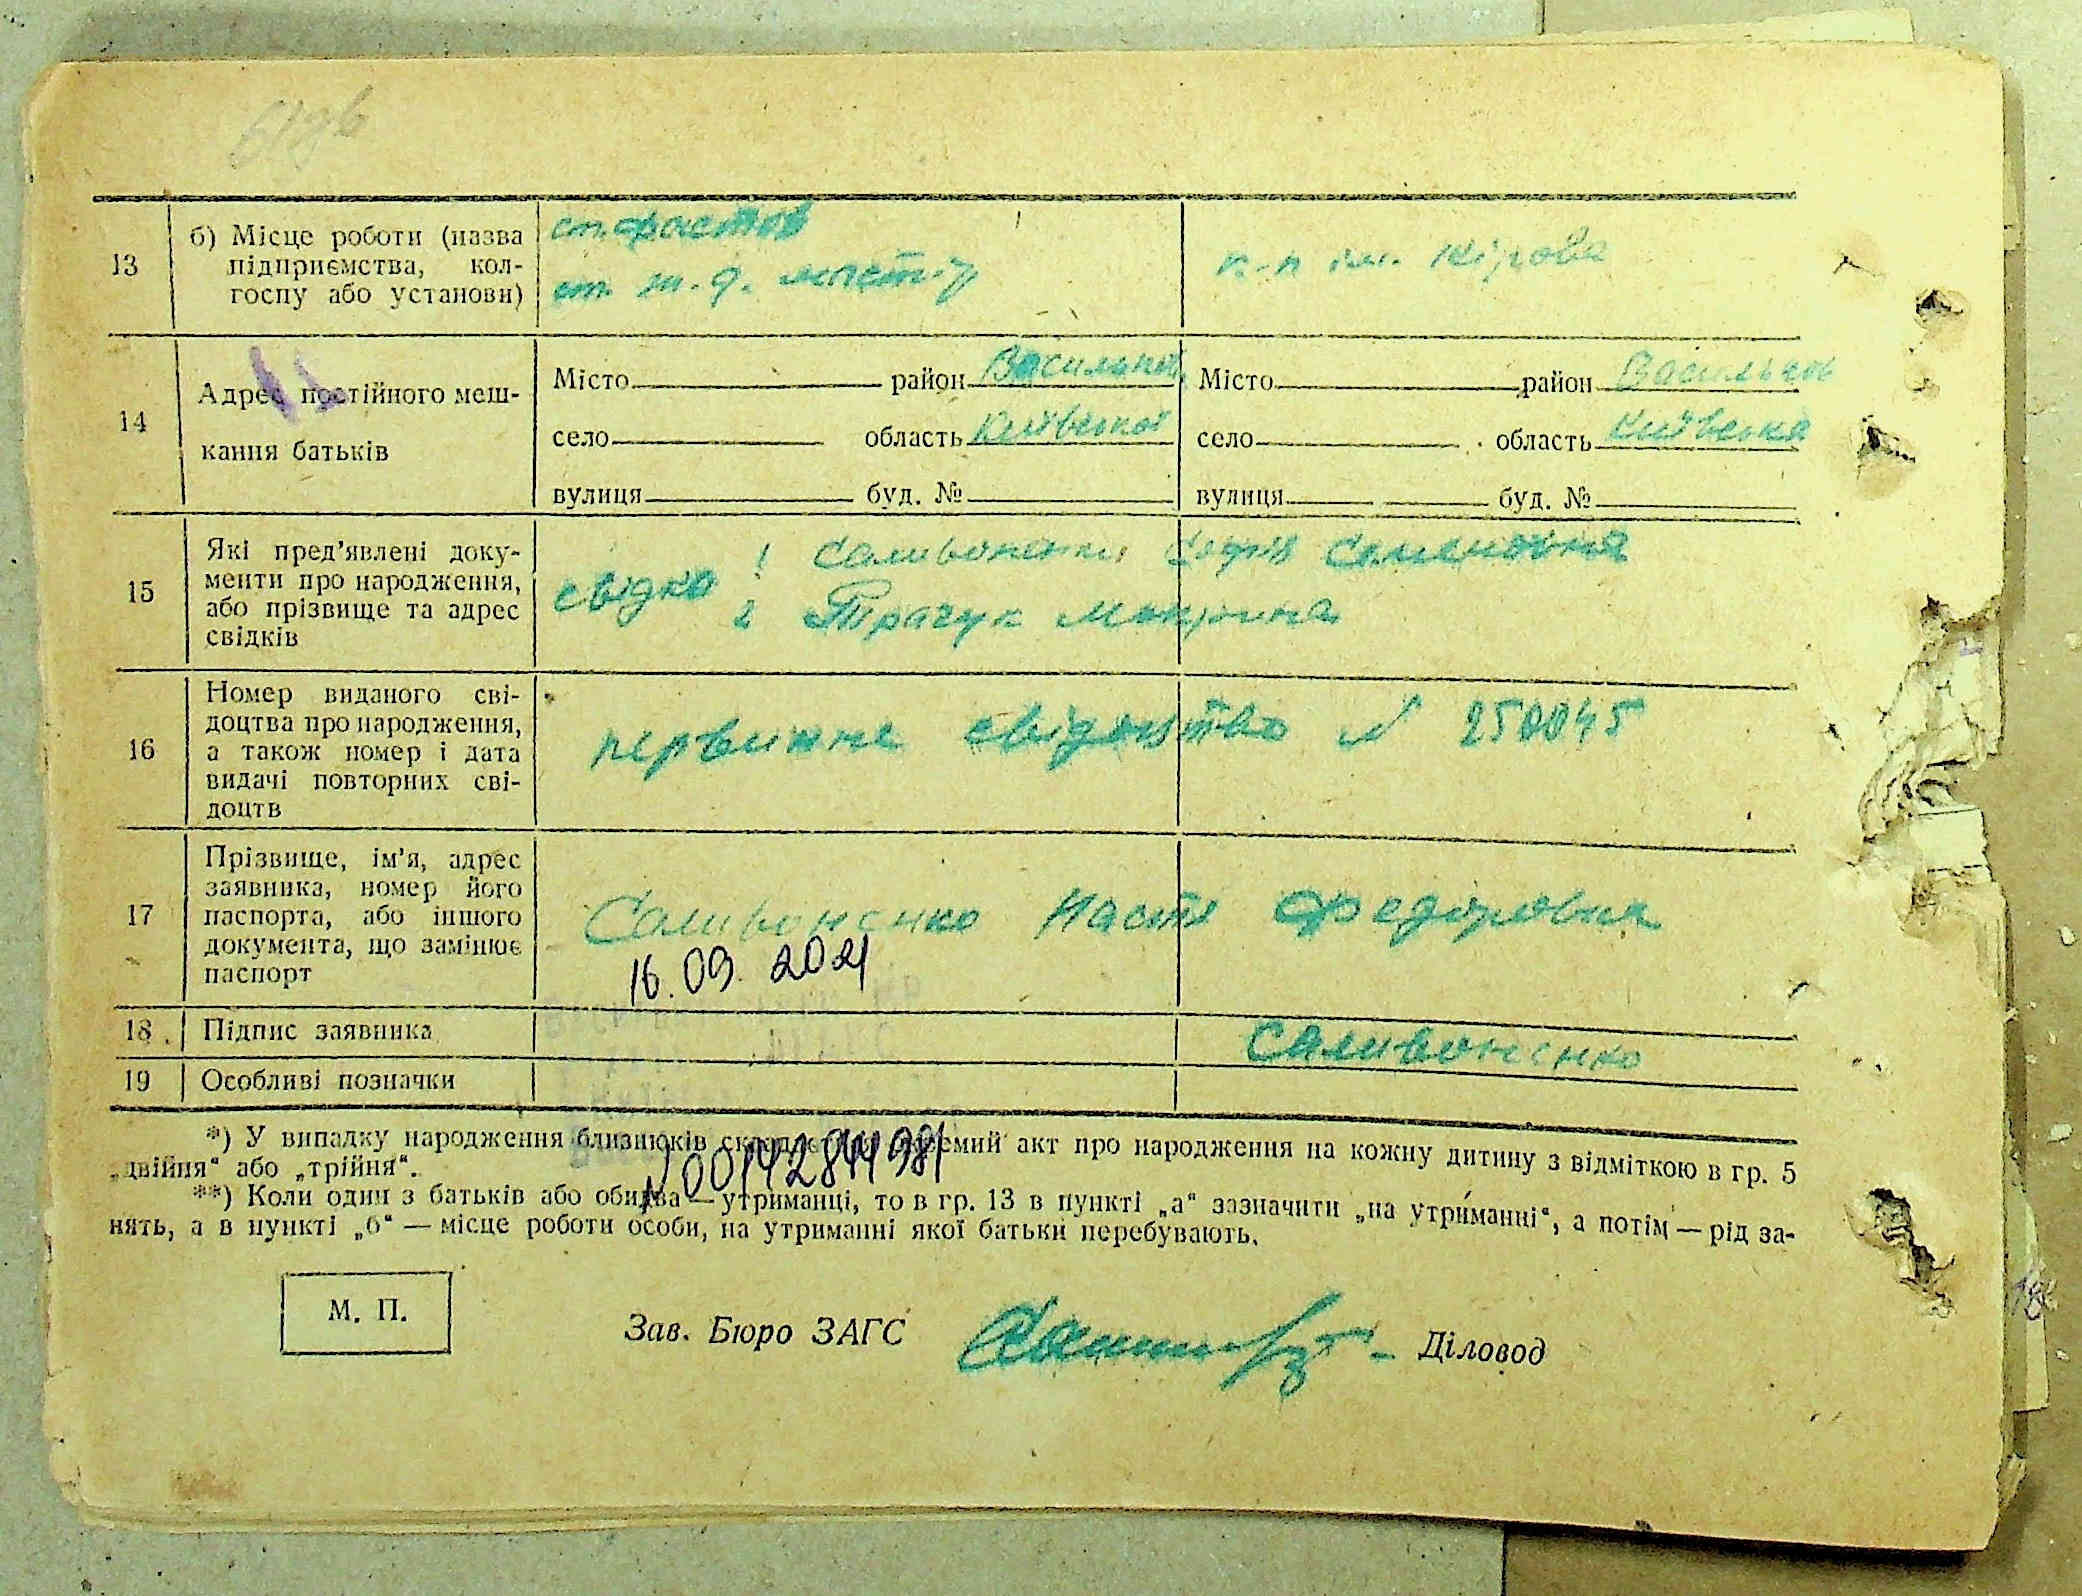 13
б) Місце роботи (назва
підприємства, кол-
госпу або установи)
ст. Фастов
ст. ж. д. майстер
к-п ім. Кірова
14
Адрес постійного меш-
кання батьків
Місто район Васильков.
село область Київської
вулиця буд. №
Місто район Васильков
село область Київська
вулиця буд. №
15
Які пред’явлені доку-
менти про народження,
або прізвище та адрес
свідків
свідки 1 Саливоненко Софія Семеновна
2 Ткачук Мокрина
16
Номер виданого сві-
доцтва про народження,
а також номер і дата
видачі повторних сві-
доцтв
первинне свідоцтво N 250045
17
Прізвище, ім’я, адрес
заявника, номер його
паспорта, або іншого
документа, що замінює
паспорт
Саливоненко Настя Федоровна
16.09.2021
18 Підпис заявника
Саливоненко
19 Особливі позначки
*) У випадку народження близнюків складається окремий акт про народження на кожну дитину з відміткою в гр. 5
„двійня“ або „трійня“.
N00142844981
**) Коли один з батьків або обидва — утриманці, то в гр. 13 в пункті „а“ зазначити „на утриманні“, а потім — рід за-
нять, а в пункті „б“ — місце роботи особи, на утриманні якої батьки перебувають.
М. П.
Зав. Бюро ЗАГС
Діловод